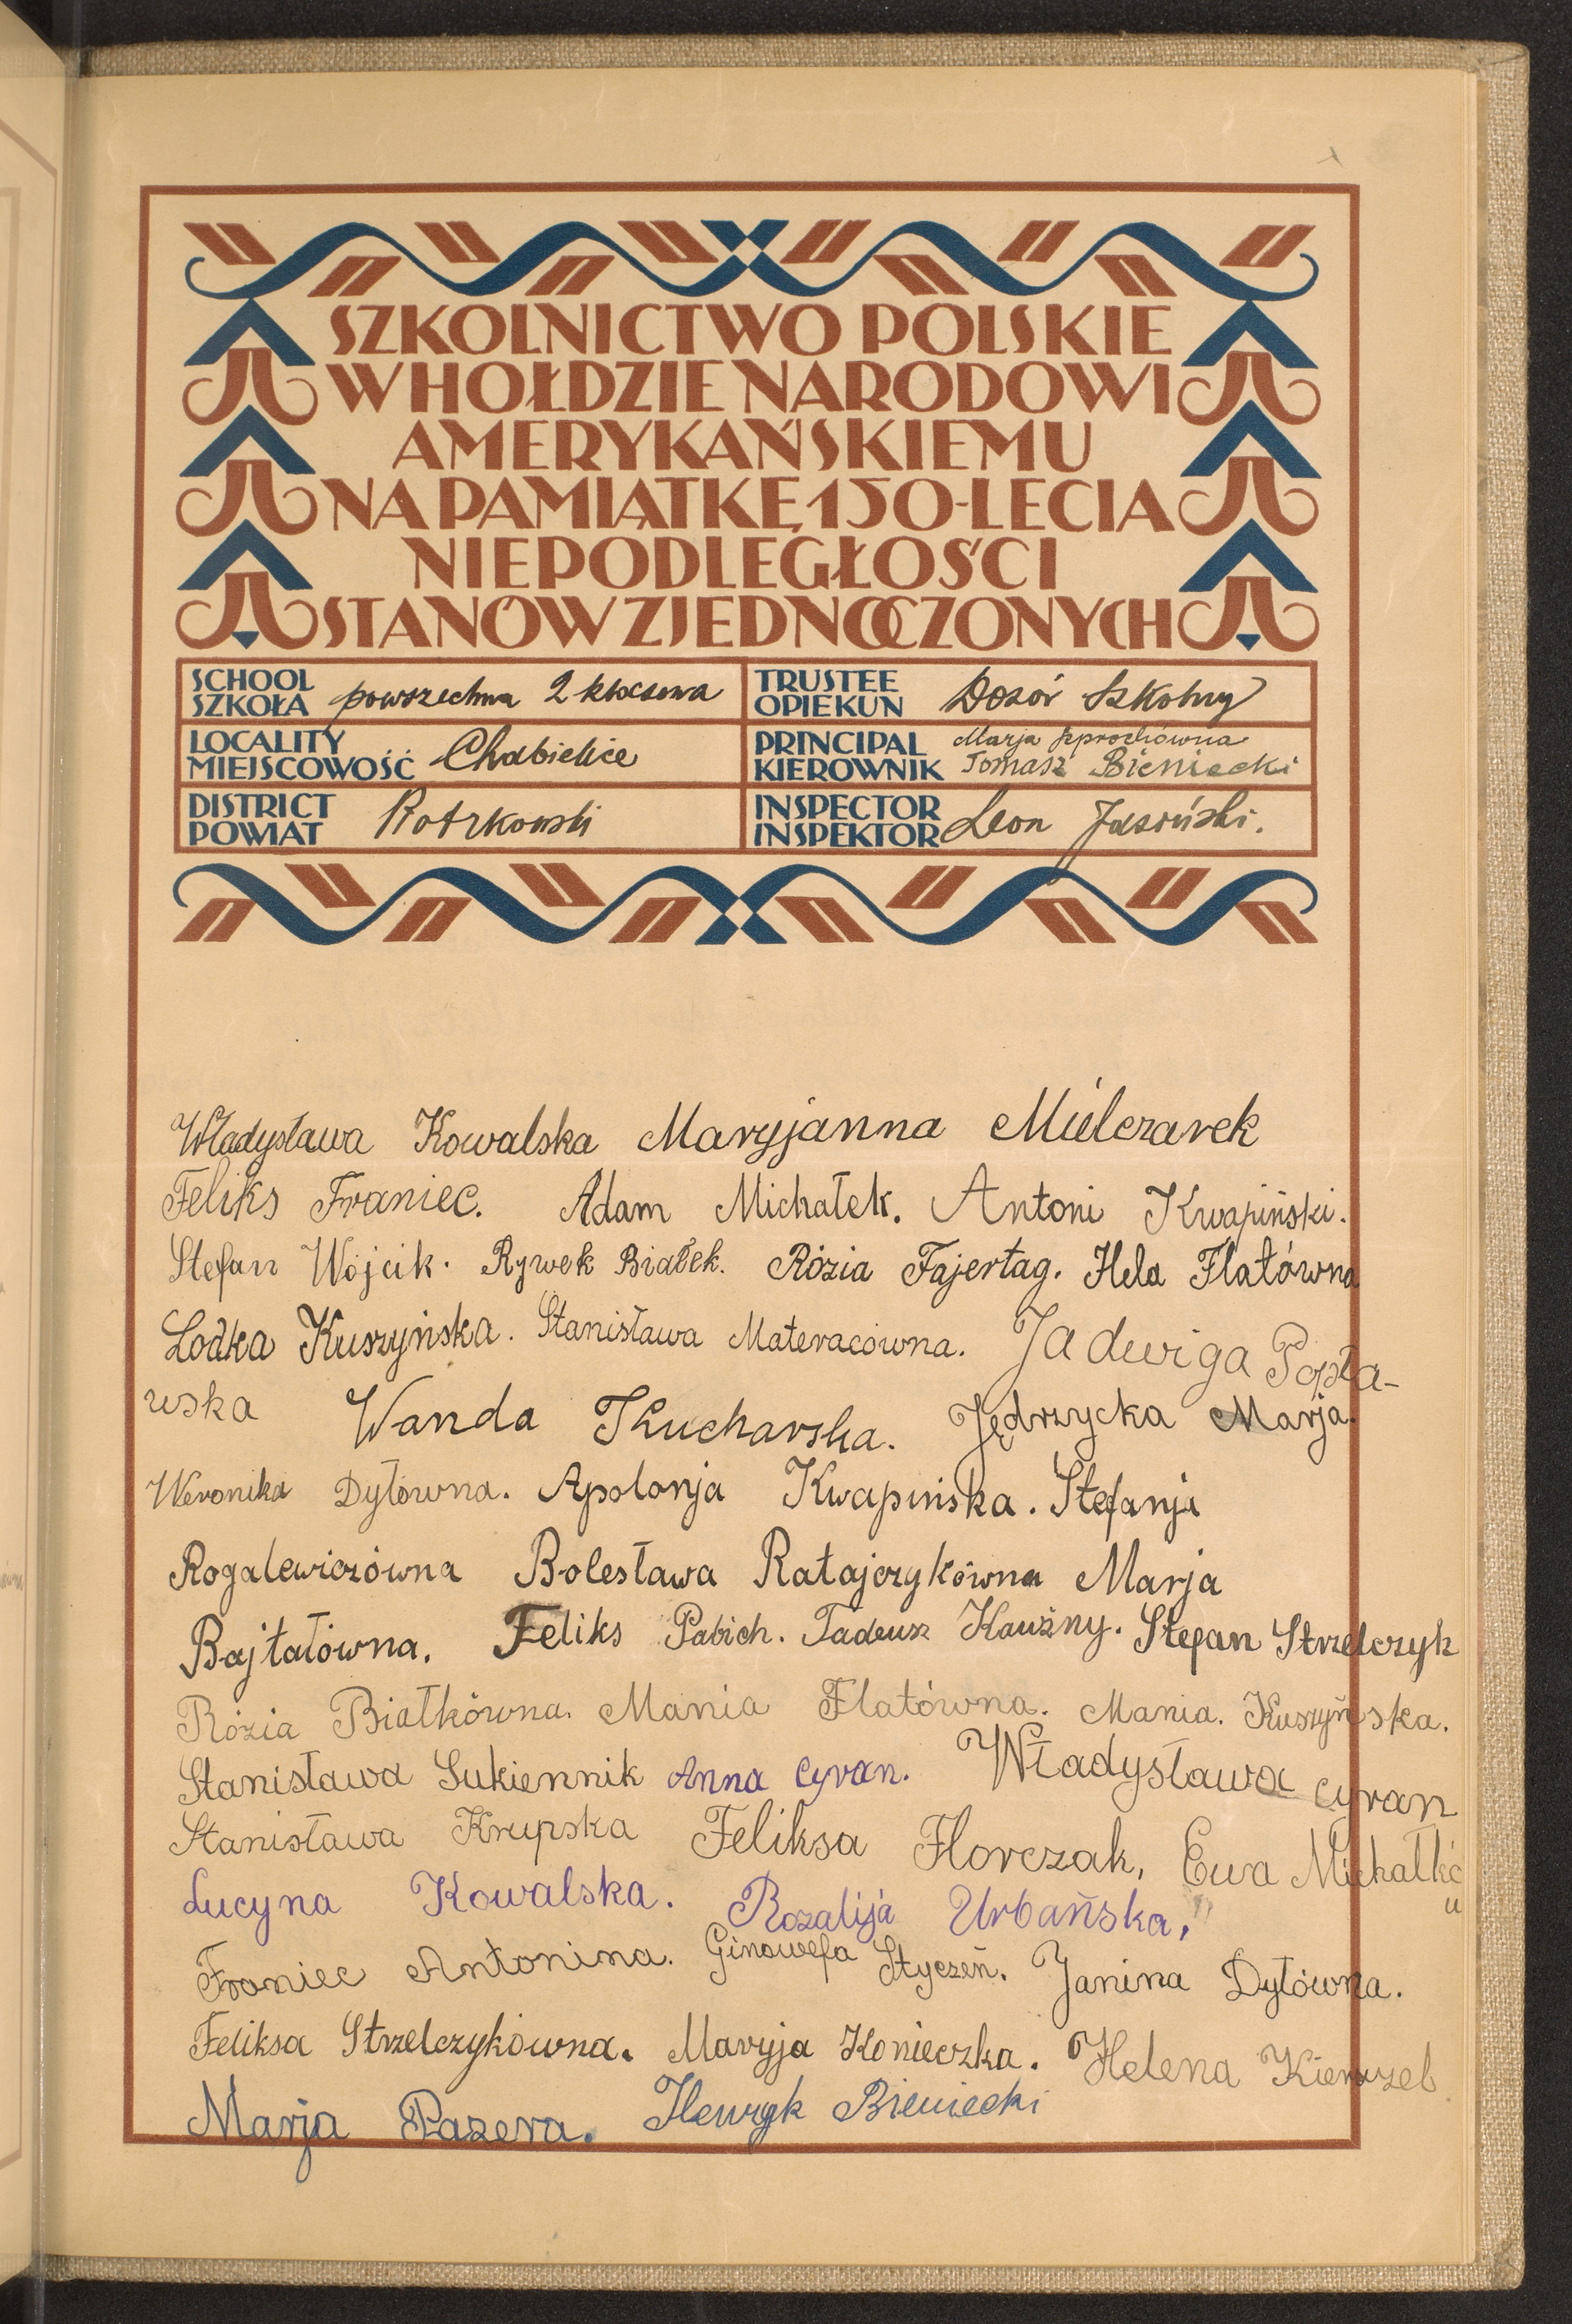 SZKOLNICTWO POLSKIE
W HOŁDZIE NARODOWI
AMERYKAŃSKIEMU
NA PAMIĄTKĘ 150-LECIA
NIEPODLEGŁOŚCI
STANÓW ZJEDNOCZONYCH
SCHOOL SZKOŁA powszechna 2 klasowa
TRUSTEE OPIEKUN Dozór Szkolny
LOCALITY MIEJSCOWOŚĆ Chabielice
PRINCIPAL KIEROWNIK Marja Tomasz Bieniecki
DISTRICT POWIAT Piotrkowski
INSPECTOR INSPEKTOR Leon Jasiński.
Władysława Kowalska Maryjanna Mielczarek
Feliks Franiec. Adam Michałek. Antoni Kwapiński.
Stefan Wójcik. Rywek Białek. Rózia Fajertag. Hela Flatówna
Lodka Kuszyńska. Stanisława Materacówna. Jadwiga Popła-
wska Wanda Kucharska. Jędrzycka Marja.
Weronika Dytówna. Apolonja Kwapińska. Stefanja
Rogalewiczówna Bolesława Ratajczykówna Marja
Bajtałówna. Feliks Pabich. Tadeusz Kauźny. Stefan Strzelczyk
Rózia Białkówna. Mania Flatówna. Mania. Kuszyńska.
Stanisława Sukiennik Anna Cyran. Władysława Cyran
Stanisława Krupska Feliksa Florczak, Ewa Michałkó
Lucyna Kowalska. Rozalija Urbańska,
Franiec Antonina. Ginowefa Styczeń. Janina Dytówna.
Feliksa Strzelczykówna. Maryja Konieczka. Helena Kierwzel
Marja Pazera. Henryk Bieniecki